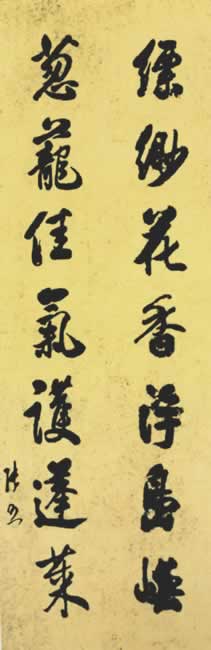 縹緲花香浮島嶼
葱蘢佳氣護蓬萊